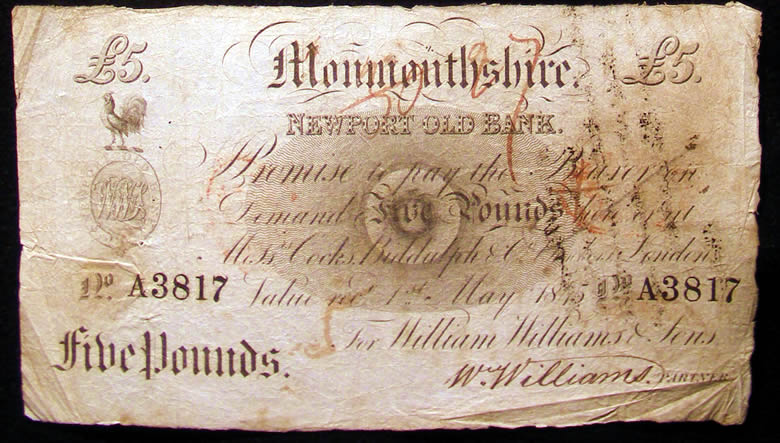 £5. Monmouthshire. £5.
NEWPORT OLD BANK.
Promise to pay the Bearer on
Demand Five Pounds here or at
Messrs Cocks, Biddulph & Co. London
No. A3817 Value recd. 1st May No. A3817
For William Williams & Sons
Five Pounds.
Wm Williams. PARTNER